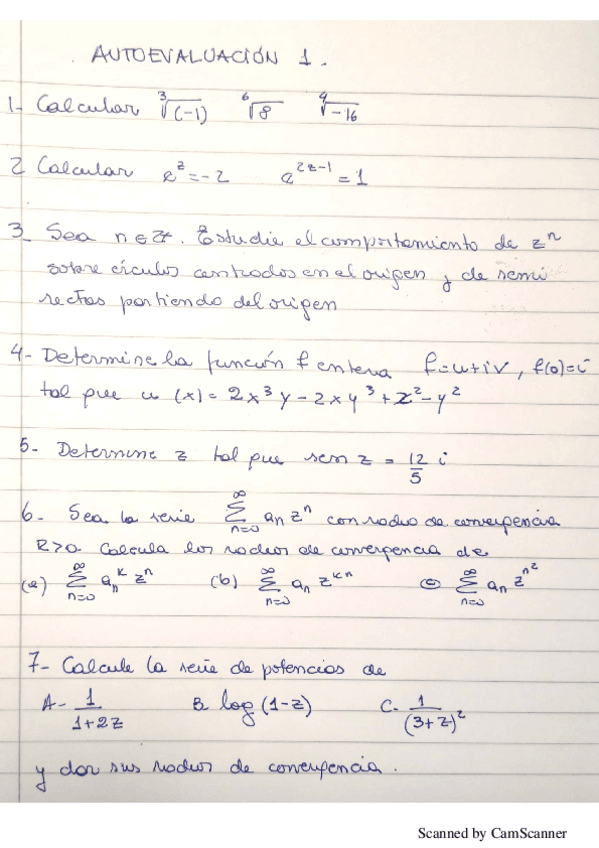 AUTOEVALUACIÓN 1.
1- Calcular ∛(-1) ⁶√8 ⁴√-16
2 Calcular e^z = -2 e^{2z-1} = 1
3_ Sea n ∈ Z⁺. Estudie el comportamiento de z^n
sobre círculos centrados en el origen y de semi
rectas partiendo del origen
4- Determine la función f entera f=u+iv, f(0)=i
tal que u (x) = 2x³y - 2xy³ + x² - y²
5- Determine z tal que sem z = 12/5 i
6- Sea la serie ∑_{n=0}^{∞} a_n z^n con radio de convergencia
R>0. Calcula los radios de convergencia de
(a) ∑_{n=0}^{∞} a_n^k z^n (b) ∑_{n=0}^{∞} a_n z^{kn} (c) ∑_{n=0}^{∞} a_n z^{n²}
7- Calcule la serie de potencias de
A- 1/(1+2z) B. log (1-z) C. 1/(3+z)²
y dar sus radios de convergencia.
Scanned by CamScanner